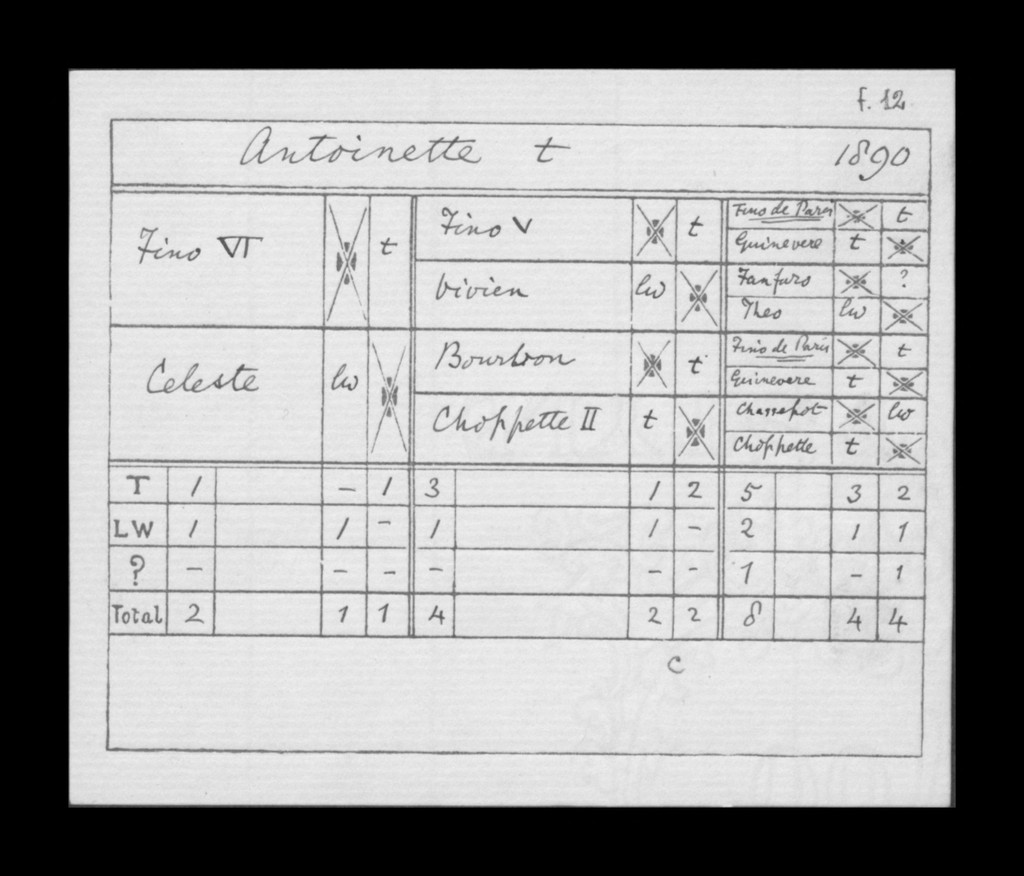 f. 12
Antoinette t 1890
Fino VI t
Celeste lw
Fino V t
Vivien lw
Bourbon t
Choppette II t
Fino de Paris t
Guinevere t
Fanfaro ?
Theo lw
Fino de Paris t
Guinevere t
Chassepot lw
Choppette t
T 1 – 1 3 1 2 5 3 2
LW 1 1 – 1 1 – 2 1 1
? – – – – – – 1 – 1
Total 2 1 1 4 2 2 8 4 4
C